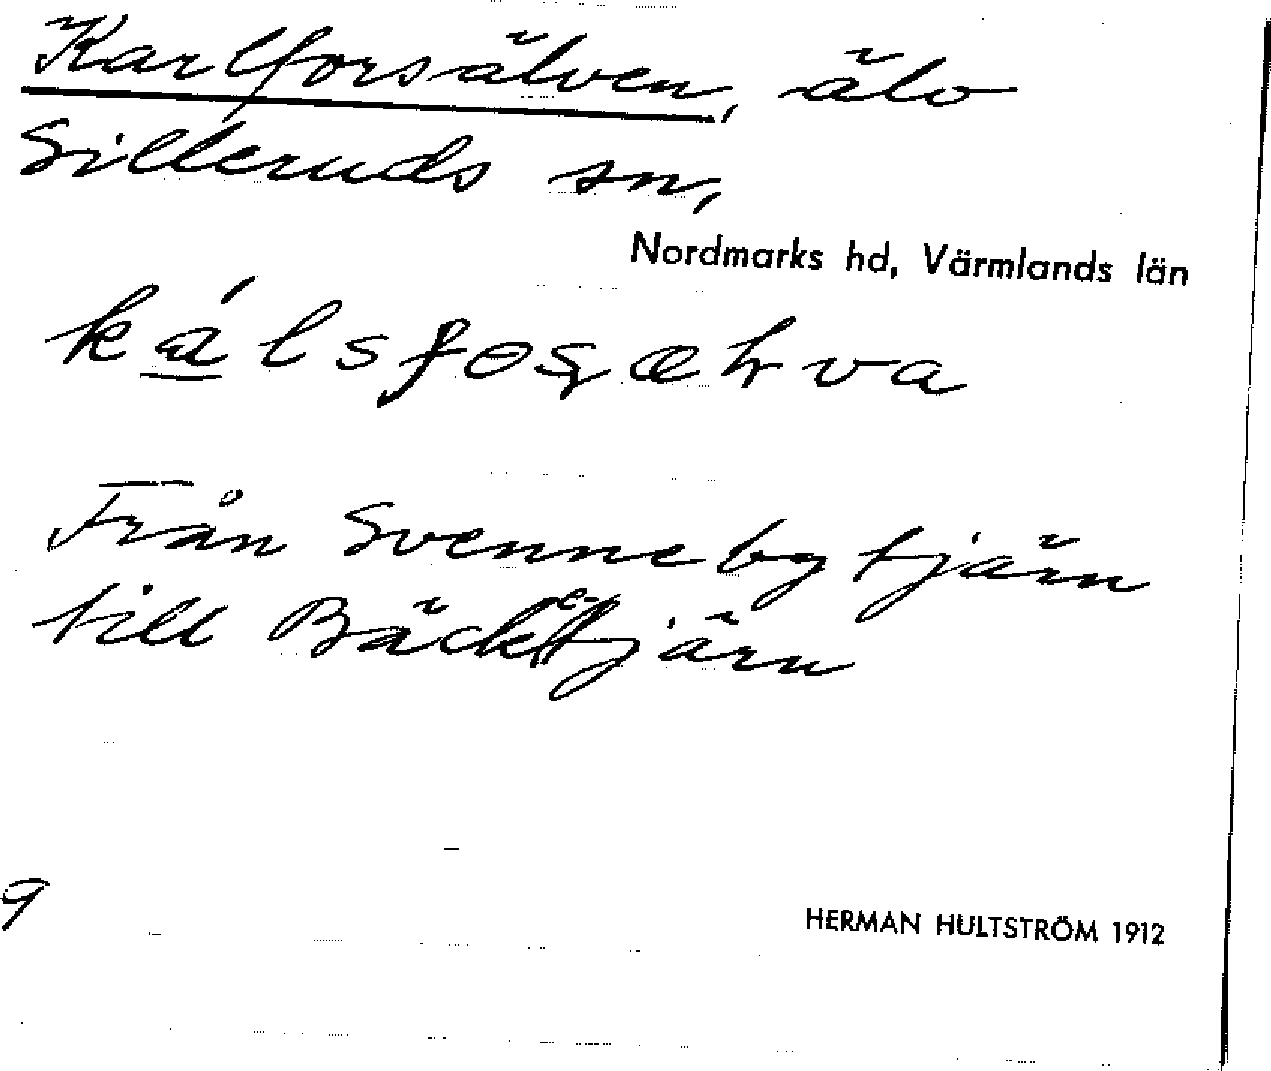 Karlforsälven, älv
Silleruds sn,
Nordmarks hd, Värmlands län
Från Svenneby tjärn
till Bäcketjärn
9
HERMAN HULTSTRÖM 1912